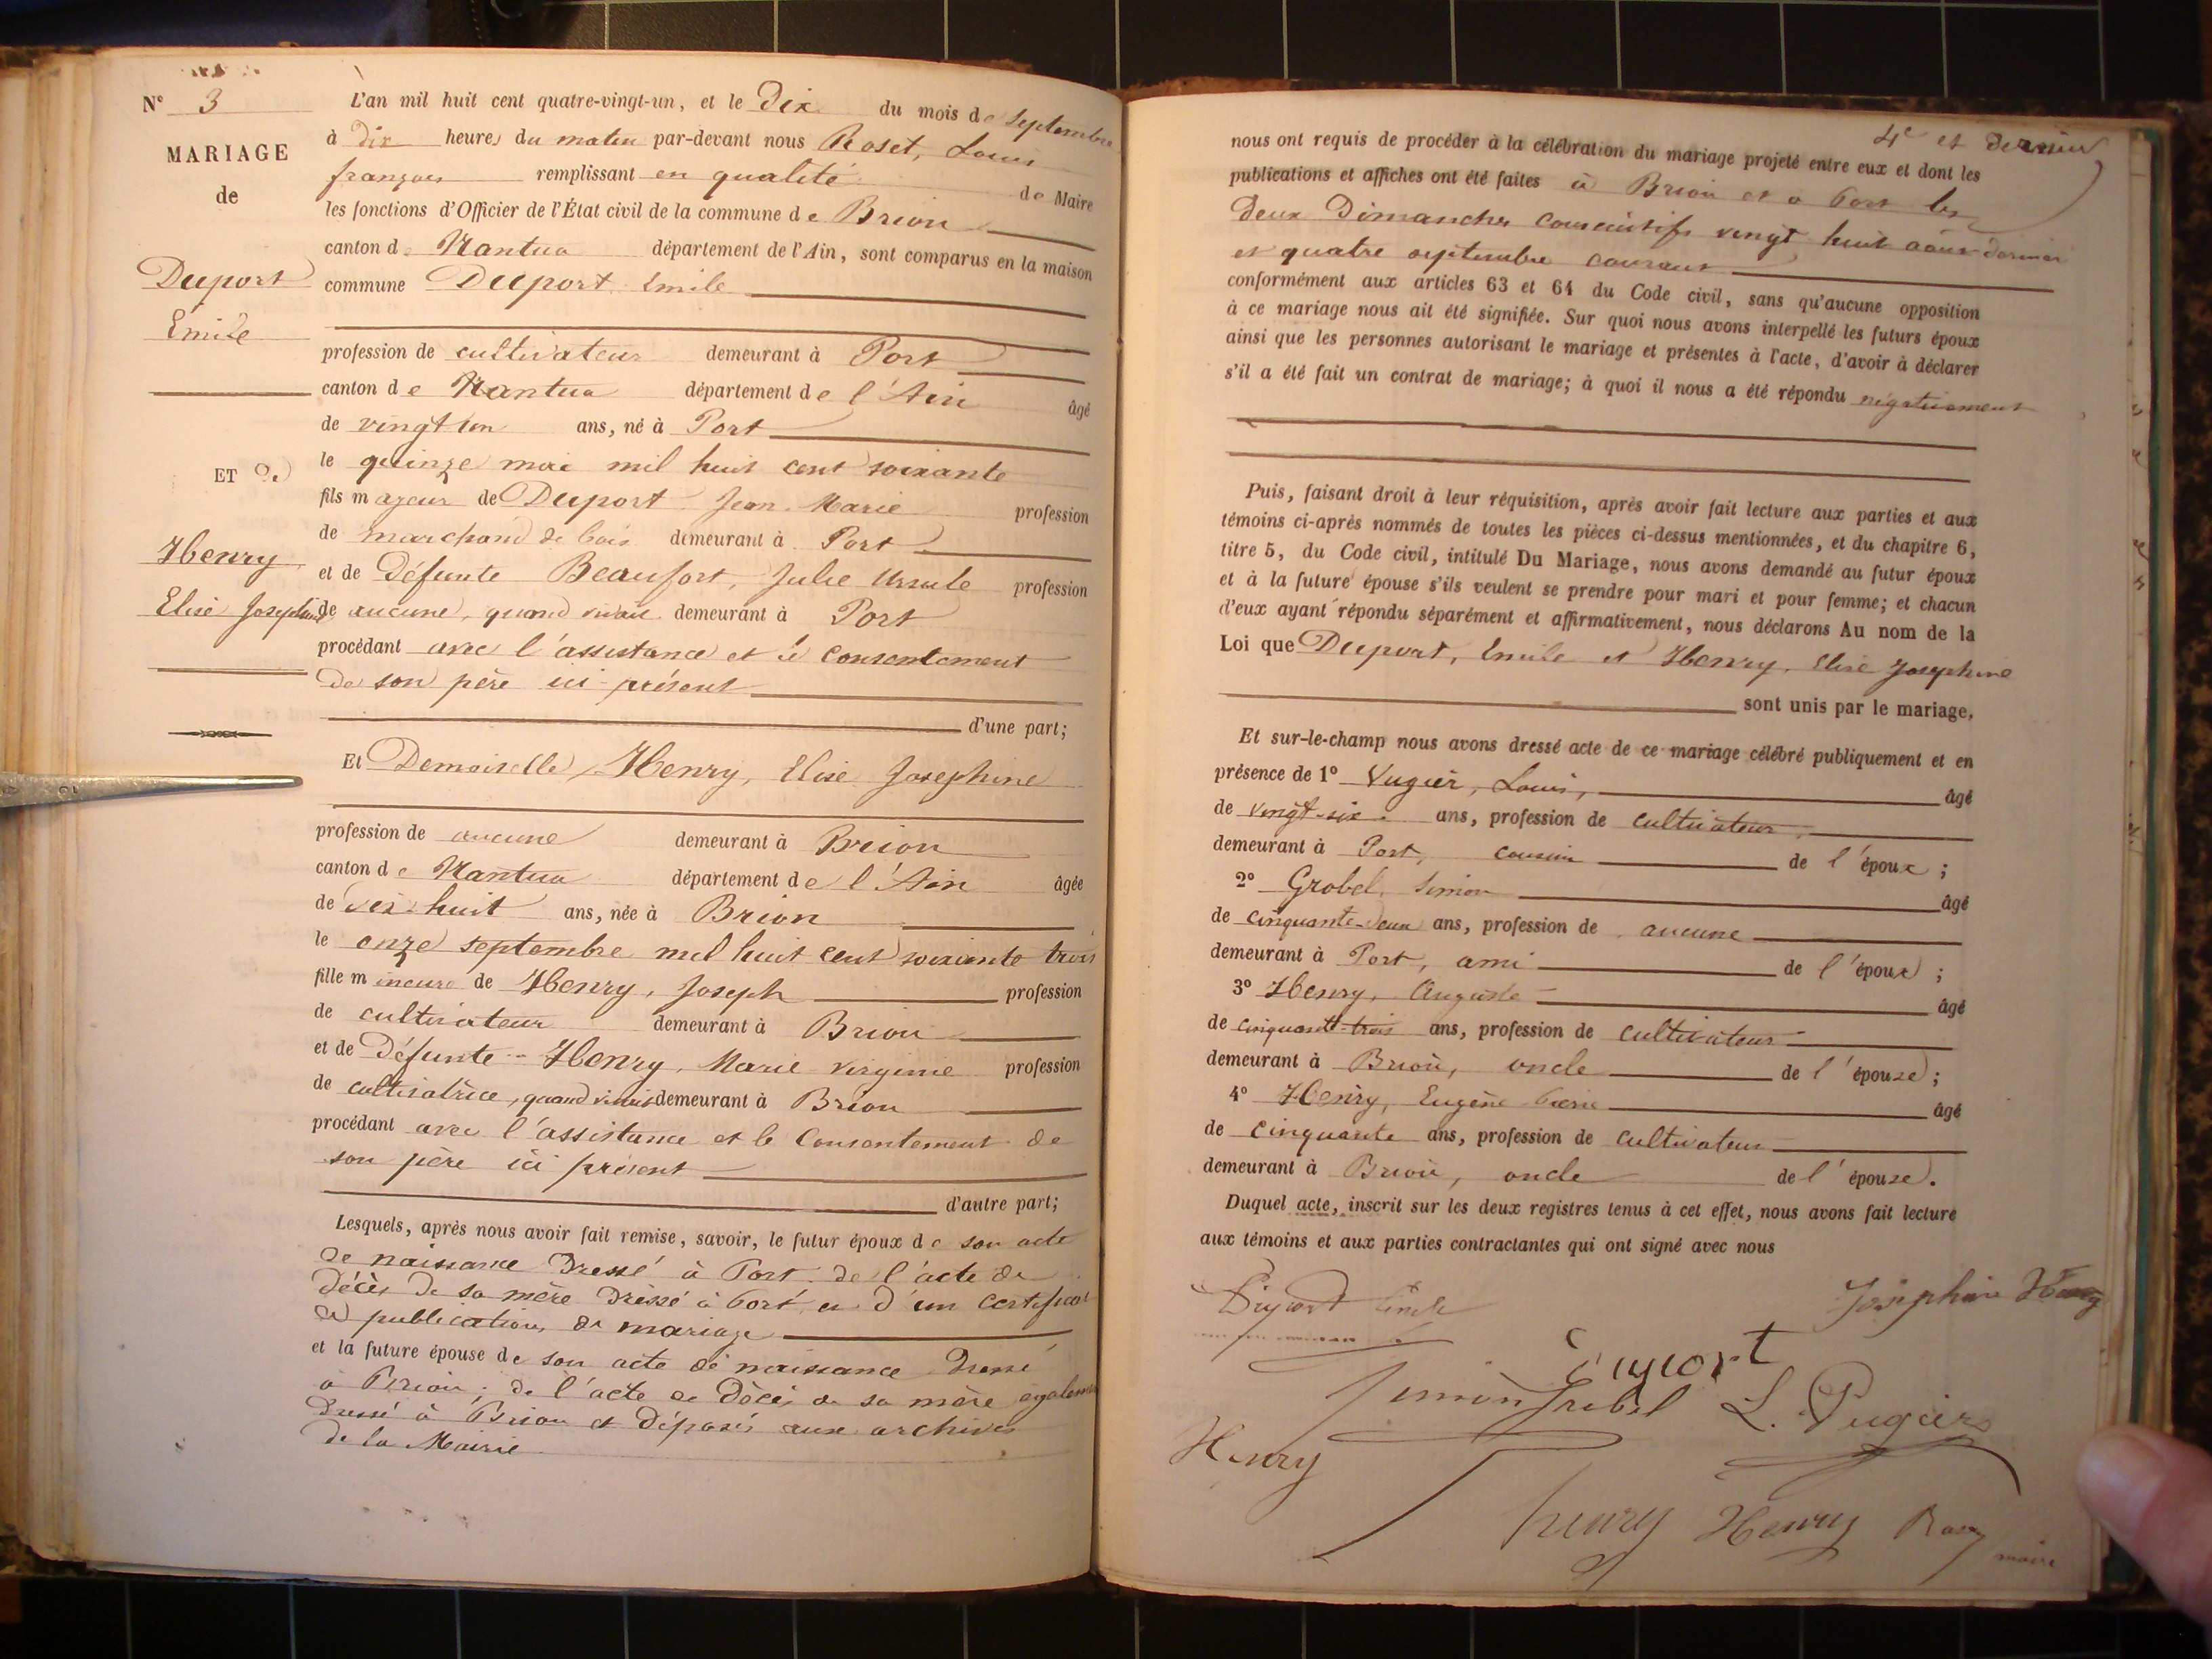 N° 3
MARIAGE
de
Duport
Emile
ET D.
Henry
Elise Josephine
L'an mil huit cent quatre-vingt-un, et le Dix du mois de Septembre
à Dix heures du matin par-devant nous Roset, Louis
françois remplissant en qualité de Maire
les fonctions d'Officier de l'État civil de la commune de Brion
canton de Nantua département de l'Ain, sont comparus en la maison
commune Duport Emile
profession de cultivateur demeurant à Port
canton de Nantua département de l'Ain âgé
de vingt un ans, né à Port
le quinze mai mil huit cent soixante
fils majeur de Duport Jean Marie profession
de marchand de bois demeurant à Port
et de Défunte Beaufort, Julie Ursule profession
de aucune, quand vivait demeurant à Port
procédant avec l'assistance et le consentement
de son père ici présent
d'une part;
Et Demoiselle, Henry, Elise Josephine
profession de aucune demeurant à Brion
canton de Nantua département de l'Ain âgée
de Dix-huit ans, née à Brion
le onze septembre mil huit cent soixante trois
fille mineure de Henry, Joseph profession
de cultivateur demeurant à Brion
et de Défunte Henry, Marie Virginie profession
de cultivatrice, quand vivait demeurant à Brion
procédant avec l'assistance et le Consentement de
son père ici présent
d'autre part;
Lesquels, après nous avoir fait remise, savoir, le futur époux de son acte
de naissance Dressé à Port. de l'acte de
Décès de sa mère Dressé à Port et d'un certificat
de publication de mariage
et la future épouse de son acte de naissance Dressé
à Brion; de l'acte de Décès de sa mère également
Dressé à Brion et Déposés aux archives
de la Mairie
4e et dernier
nous ont requis de procéder à la célébration du mariage projeté entre eux et dont les
publications et affiches ont été faites à Brion et à Port les
Deux Dimanches consécutifs vingt huit août dernier
et quatre septembre courant
conformément aux articles 63 et 64 du Code civil, sans qu'aucune opposition
à ce mariage nous ait été signifiée. Sur quoi nous avons interpellé les futurs époux
ainsi que les personnes autorisant le mariage et présentes à l'acte, d'avoir à déclarer
s'il a été fait un contrat de mariage; à quoi il nous a été répondu négativement
Puis, faisant droit à leur réquisition, après avoir fait lecture aux parties et aux
témoins ci-après nommés de toutes les pièces ci-dessus mentionnées, et du chapitre 6,
titre 5, du Code civil, intitulé Du Mariage, nous avons demandé au futur époux
et à la future épouse s'ils veulent se prendre pour mari et pour femme; et chacun
d'eux ayant répondu séparément et affirmativement, nous déclarons Au nom de la
Loi que Duport, Emile et Henry, Elise Josephine
sont unis par le mariage.
Et sur-le-champ nous avons dressé acte de ce mariage célébré publiquement et en
présence de 1° Pugier, Louis, âgé
de vingt-six ans, profession de cultivateur
demeurant à Port, cousin de l'époux;
2° Grobel, Simon âgé
de cinquante-deux ans, profession de aucune
demeurant à Port, ami de l'époux;
3° Henry, Auguste âgé
de cinquante-trois ans, profession de cultivateur
demeurant à Brion, oncle de l'épouse;
4° Henry, Eugène Pierre âgé
de cinquante ans, profession de cultivateur
demeurant à Brion, oncle de l'épouse.
Duquel acte, inscrit sur les deux registres tenus à cet effet, nous avons fait lecture
aux témoins et aux parties contractantes qui ont signé avec nous
Duport Emile
Josephine Henry
Duport
Simon Grobel L. Pugier
Henry
henry Henry
maire